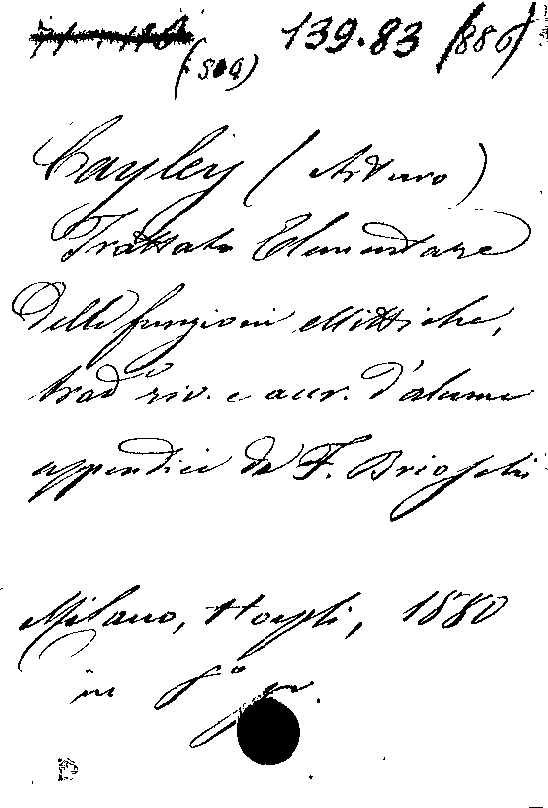 139.83 (886)
(seq)
Cayley (Arturo)
Trattato Elementare
delle funzioni ellittiche,
trad. riv. e accr. d'alcune
appendici da F. Brioschi
Milano, Hoepli, 1880
in 8° gr.